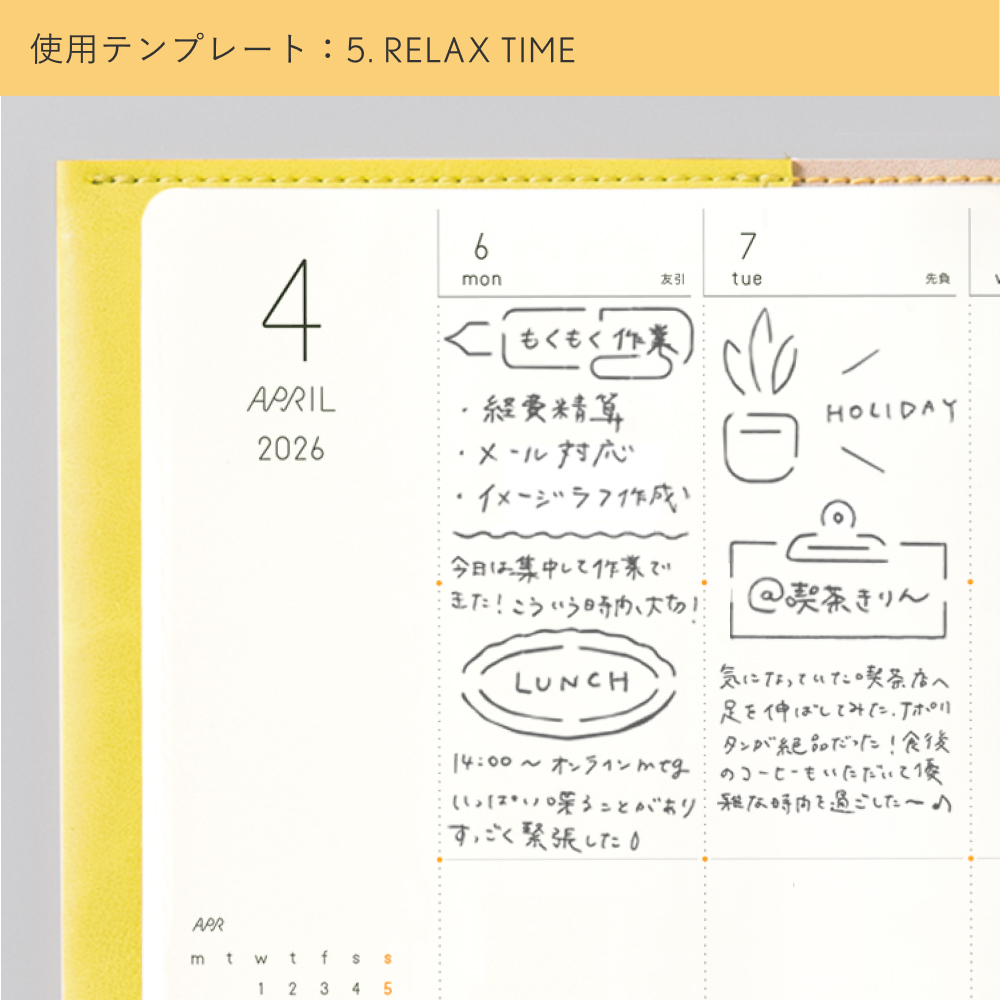 使用テンプレート：5. RELAX TIME
4
APRIL
2026
6
mon 友引
もくもく作業
・経費精算
・メール対応
・イメージラフ作成
今日は集中して作業で
きた！こういう時間、大切！
LUNCH
14:00～オンラインmtg
いっぱい喋ることがあり
すっごく緊張した
7
tue 先負
HOLIDAY
@喫茶きりん
気になっていた喫茶店へ
足を伸ばしてみた。ナポリ
タンが絶品だった！食後
のコーヒーもいただいて優
雅な時間を過ごした～♪
w
APR
m t w t f s s
1 2 3 4 5